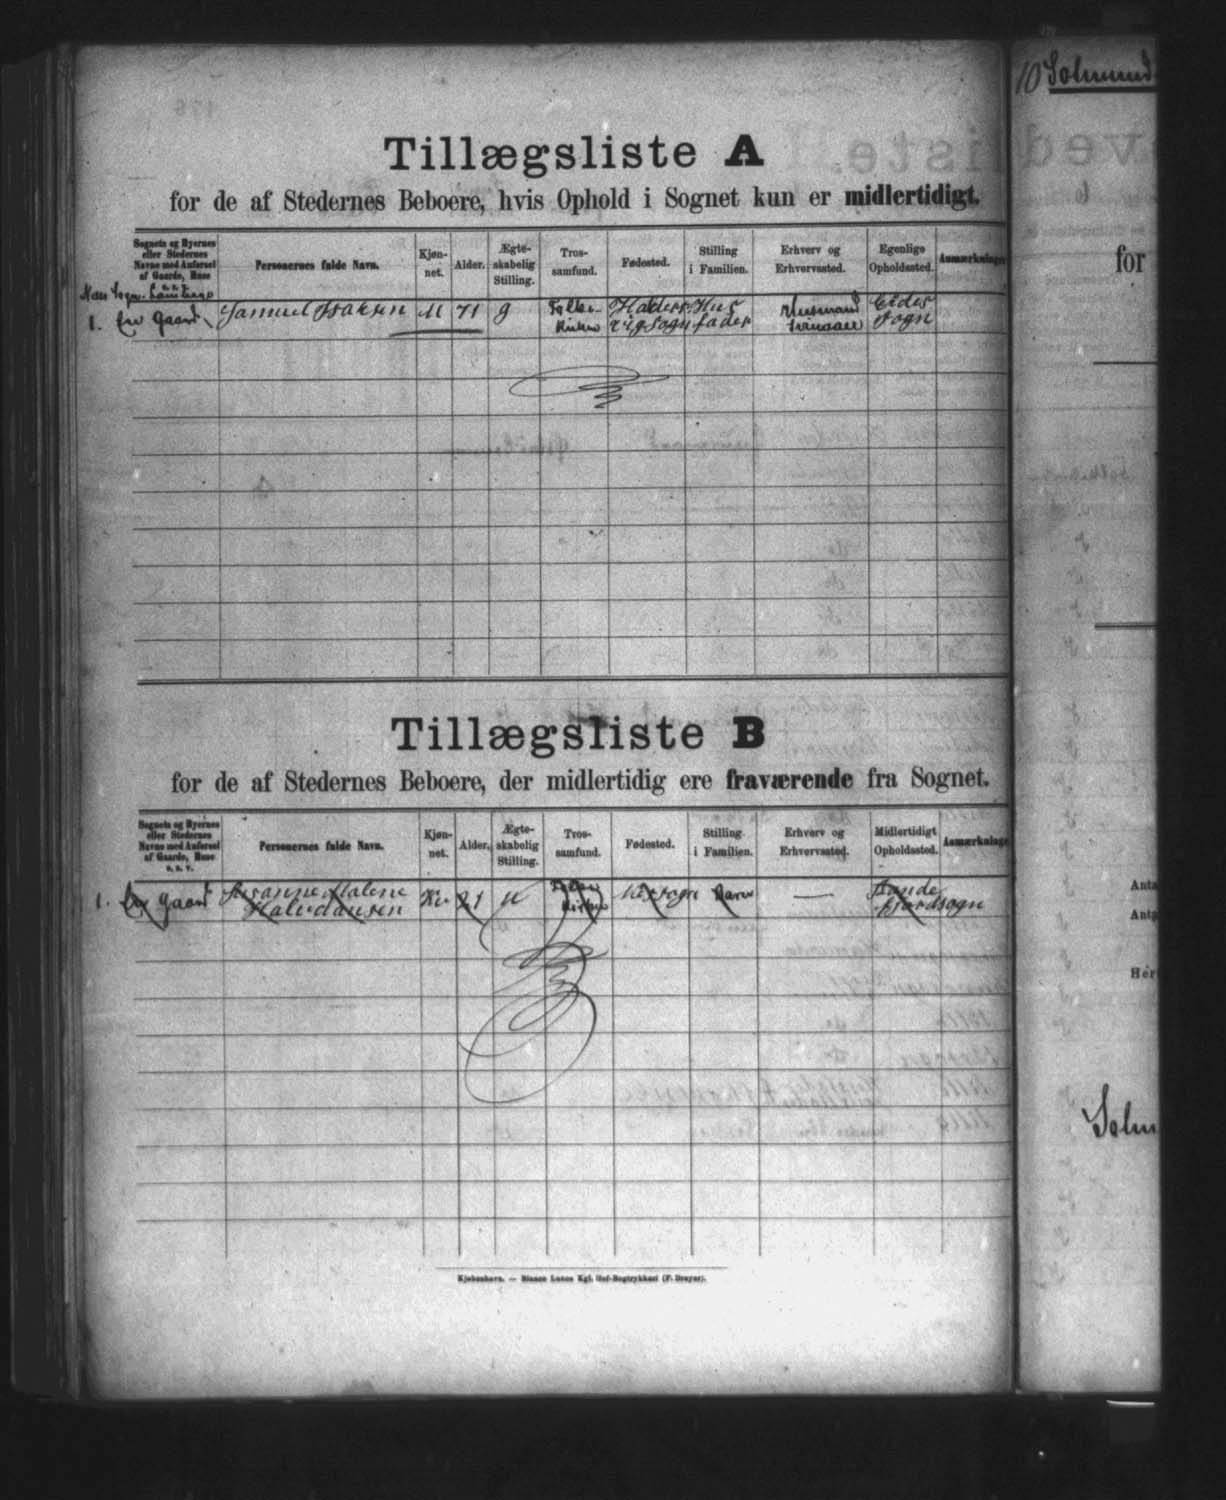 Tillægsliste A
for de af Stedernes Beboere, hvis Ophold i Sognet kun er midlertidigt.
Sognets og Byernes eller Stedernes Navne med Anførsel af Gaarde, Huse o. s. v.
Personernes fulde Navn.
Kjøn-net.
Alder.
Ægte-skabelig Stilling.
Tros-samfund.
Fødested.
Stilling i Familien.
Erhverv og Erhvervssted.
Egenlige Opholdssted.
Anmærkninge
Næs Sogn. Lambare
1. En Gaard
Samuel Isaksen
M
71
g
Folke-Kirken
Haldersvig Sogn
Husfader
Husmand
Eides Sogn
Tillægsliste B
for de af Stedernes Beboere, der midlertidig ere fraværende fra Sognet.
Sognets og Byernes eller Stedernes Navne med Anførsel af Gaarde, Huse o. s. v.
Personernes fulde Navn.
Kjøn-net.
Alder.
Ægte-skabelig Stilling.
Tros-samfund.
Fødested.
Stilling i Familien.
Erhverv og Erhvervssted.
Midlertidigt Opholdssted.
Anmærkninge
1. En Gaard
Susanne Malene Halvdansen
Kv
21
U
Folke Kirken
Næs Sogn
Barn
—
Sands
Sogn
Kjøbenhavn. — Bianco Lunos Kgl. Hof-Bogtrykkeri (F. Dreyer).
10 Solmund
for
Anta
Anta
Her
Solm